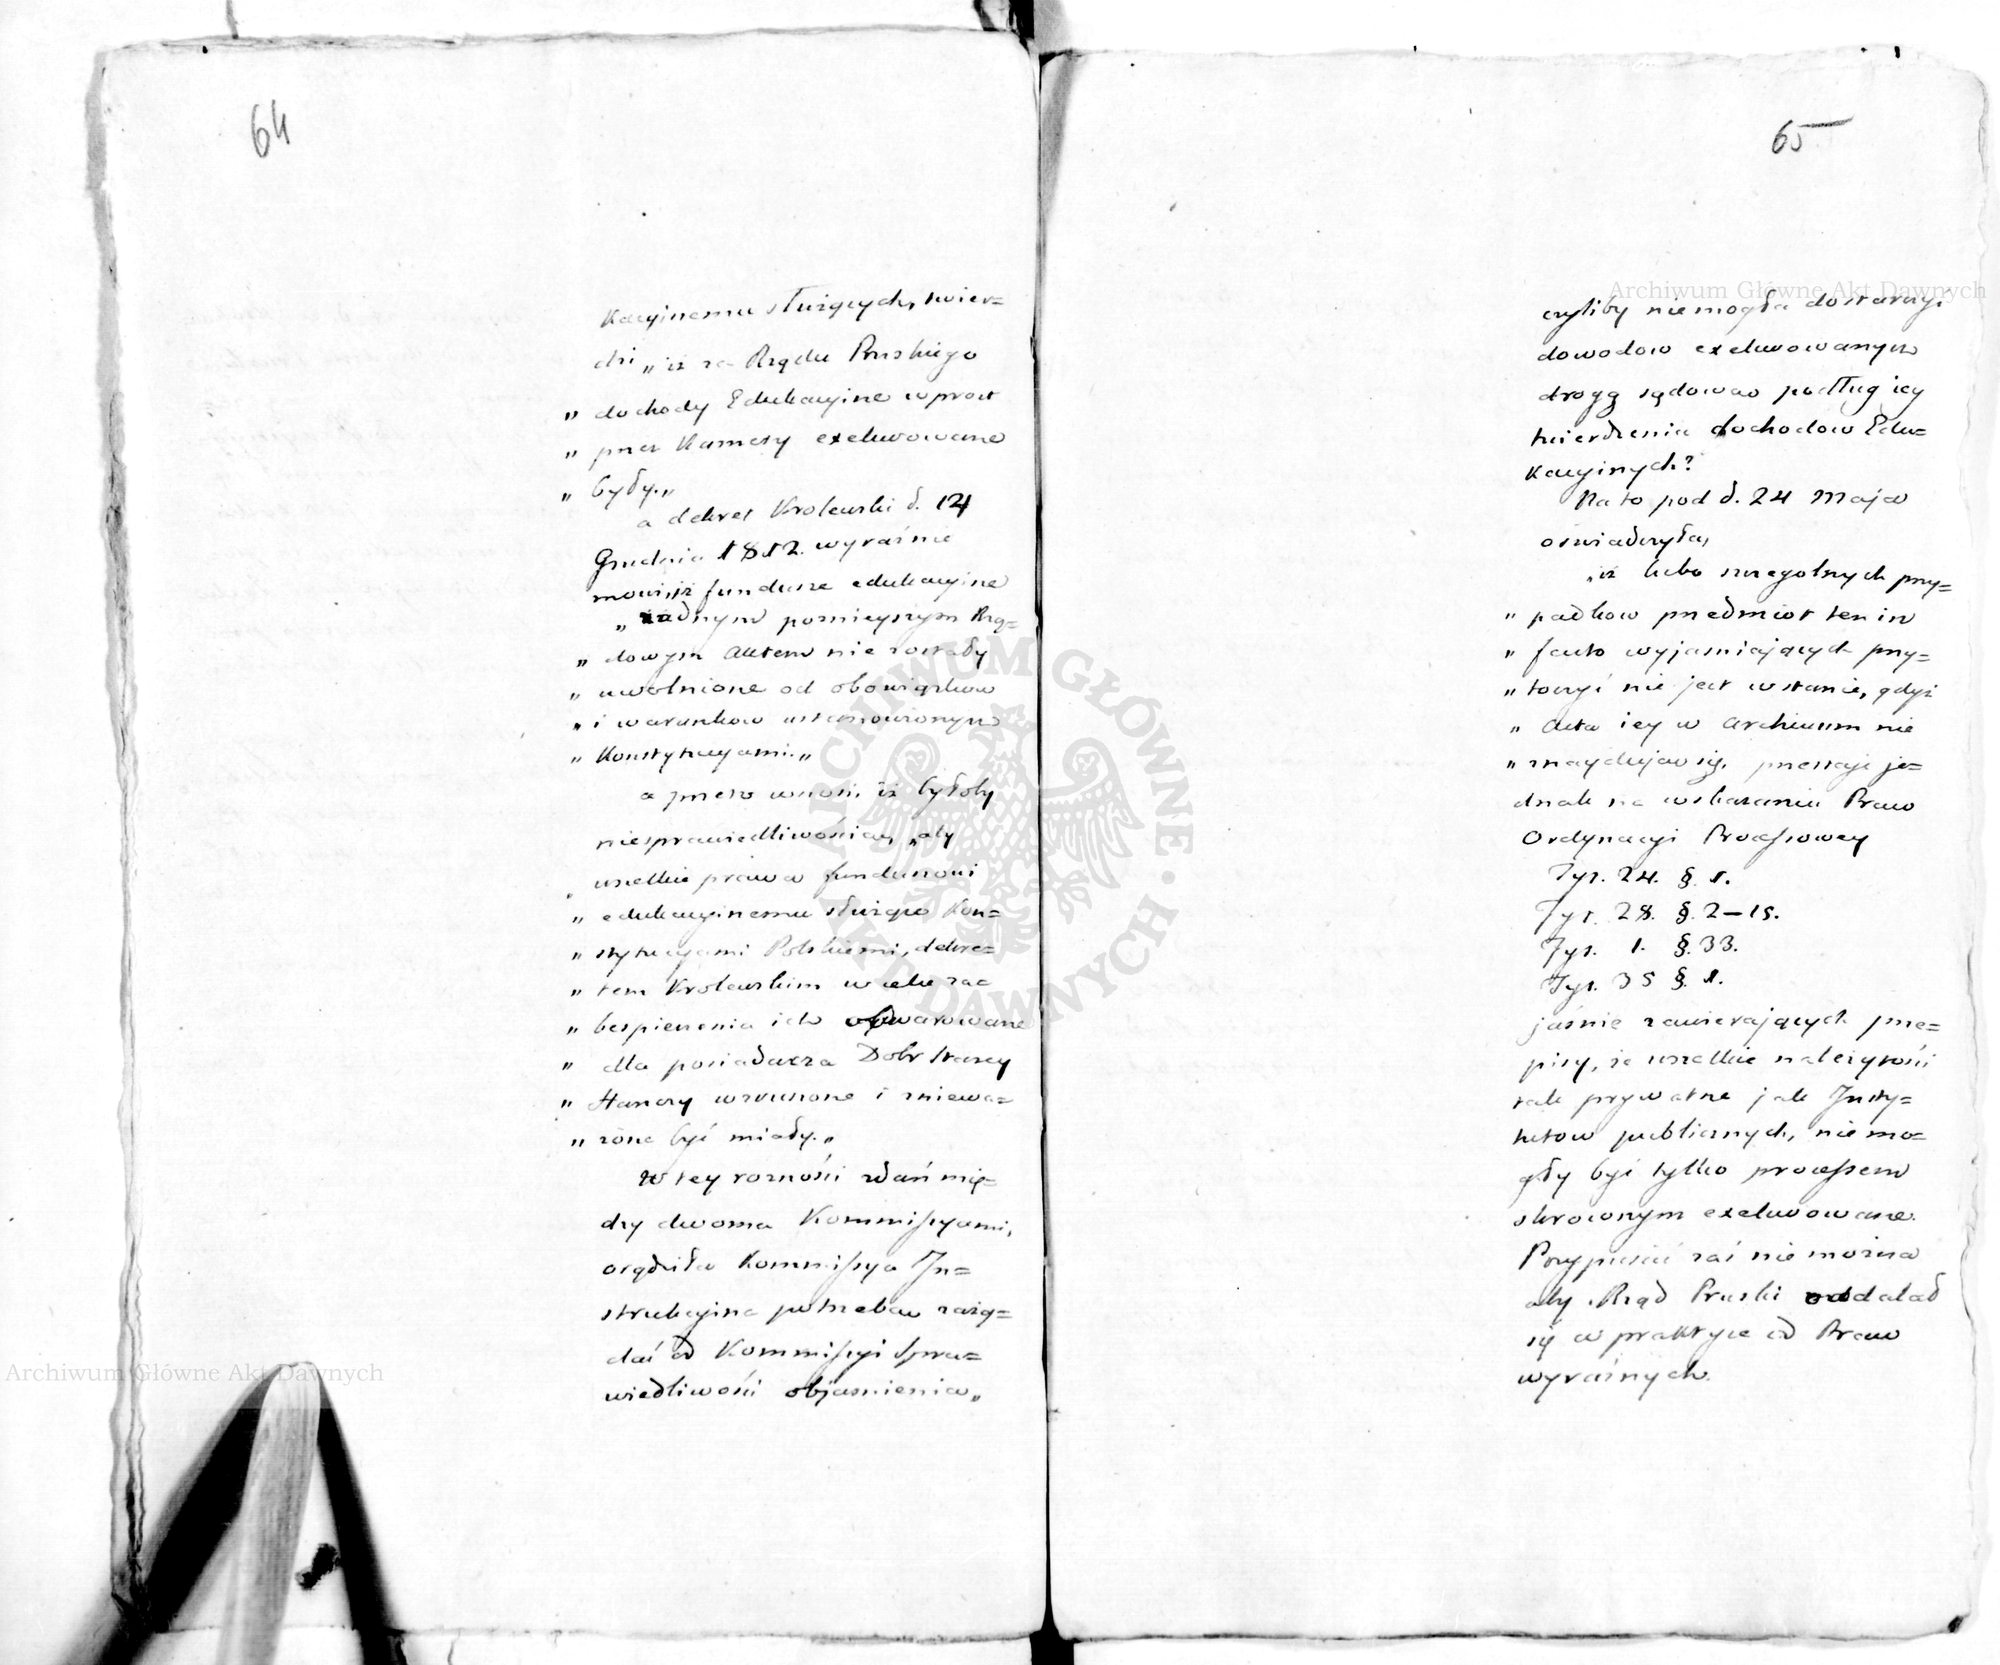 64
kacyinemu służących, twier=
dzi „iż za Rządu Pruskiego
„ dochody Edukacyine wprost
„ przez Kamery exekwowane
„ były.„
a dekret Krolewski d. 14
Grudnia 1812. wyraźnie
mowi, iż fundusze edukacyine
„żadnym poznieyszym Rzą=
„ dowym Aktem nie zostały
„ uwolnione od obowiązkow
„ i warunkow ustanowionych
„ Konstytucyami.„
a przeto wnosi iż byłoby
niesprawiedliwością, „aby
wszelkie prawa funduszowi
„ edukacyinemu służące Kon=
„ stytucyami Polskiemi, dekre=
„ tem Krolewskim w celu za=
„ bespieczenia ich obwarowane
„ dla posiadacza Dobr Starey
„ Hanczy wzruszone i zniewa=
„ żone być miały.„
W tey rozności zdań mię=
dzy dwoma Kommissyami,
osądziła Kommissya In=
strukcyina potrzebę zażą=
dać od Kommissyi Spra=
wiedliwości objasnienia„
65
Archiwum Główne Akt Dawnych
czyliby niemogła dostarczyć
dowodow exekwowanych
drogą sądową podług iey
twierdzenia dochodow Edu=
kacyinych?
Na to pod d. 24 Maja
oświadczyła,
„iż lubo szczegolnych przy=
„ padkow przedmiot ten in
„ facto wyjasniających przy=
„ toczyć nie jest wstanie, gdyż
„ Akta iey w Archiwum nie
„ znayduią się, przestaje je=
dnak na wskazaniu Praw
Ordynacyi Processowey
Tyt. 24. §. 1.
Tyt. 28. §. 2–15.
Tyt. 1. §. 33.
Tyt. 35 §. 1.
jaśnie zawierających prze=
pisy, że wszelkie należytości
tak prywatne jak Insty=
tutow publicznych, niemo=
gły być tylko processem
skroconym exekwowane.
Przypuścić zaś nie można
aby Rząd Pruski oddalał
się w praktyce od Praw
wyraźnych.
Archiwum Główne Akt Dawnych
ARCHIWUM GŁÓWNE AKT DAWNYCH